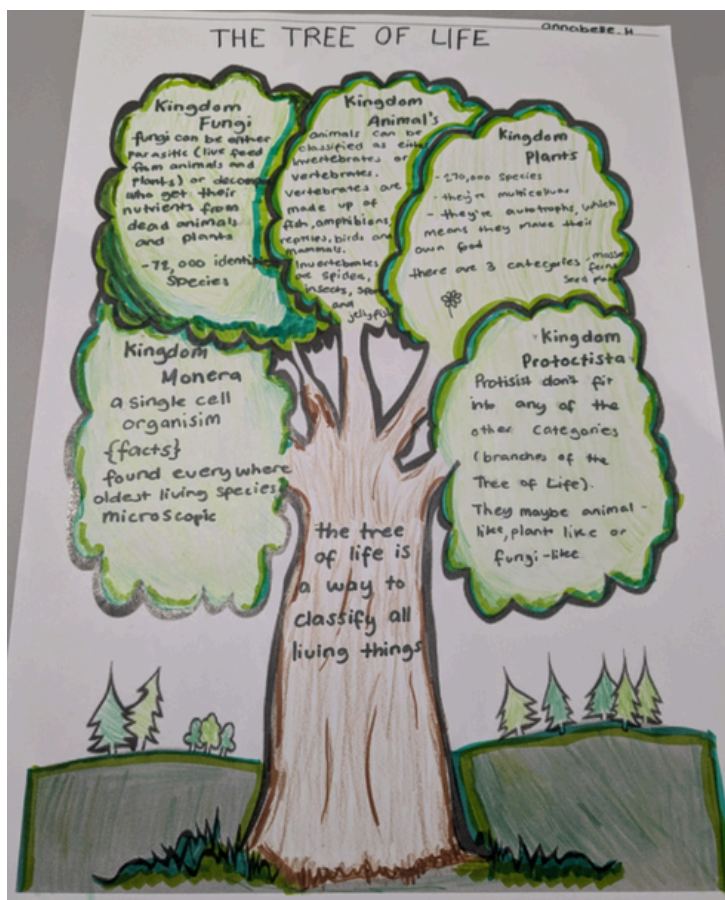 annabelle.H
THE TREE OF LIFE
Kingdom
Fungi
fungi can be either
parasitic (live feed
from animals and
plants) or
who get their
nutrients from
dead animals
and plants
-72,000
Species
Kingdom
Animal's
animals can be
classified as
invertebrates or
vertebrates.
vertebrates are
made up of
fish, amphibions,
reptiles, birds and
mammals.
Invertebrates
are spides,
insects,
and
Kingdom
Plants
-270,000 Species
- they're
- they're autotrophs, which
means they make their
own food
there are 3 categories
Kingdom
Monera
a single cell
organisim
{facts}
found everywhere
oldest living species
microscopic
Kingdom
Protoctista
don't fit
into any of the
other categories
(branches of the
Tree of Life).
They maybe animal-
like, plant like or
fungi-like
the tree
of life is
a way to
classify all
living things